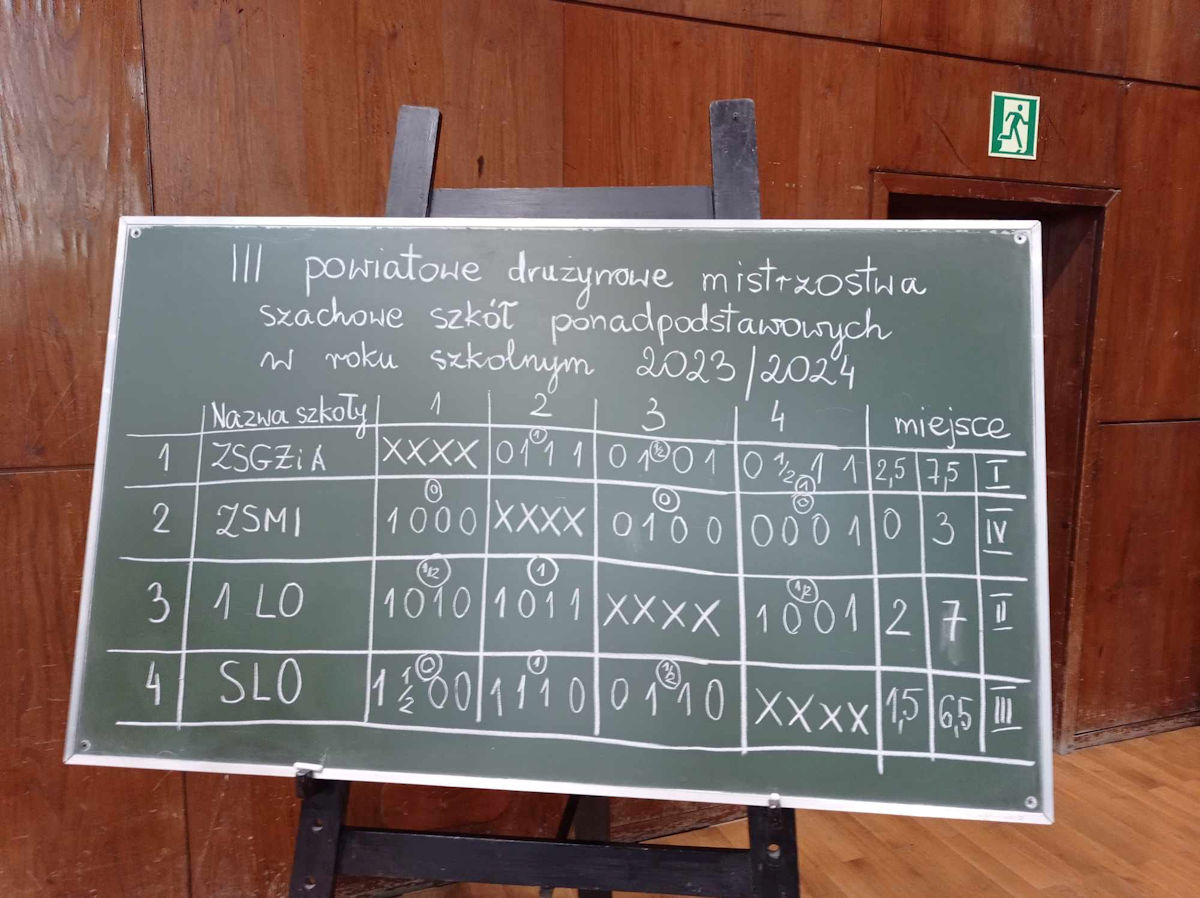 III powiatowe drużynowe mistrzostwa
szachowe szkół ponadpodstawowych
w roku szkolnym 2023/2024
Nazwa szkoły 1 2 3 4 miejsce
1 ZSGŻiA XXXX 0111 1 0101 1/2 0 1/2 1 1 1 2,5 7,5 I
2 ZSMI 1000 0 XXXX 0100 0 0001 0 0 3 IV
3 1 LO 1010 1/2 1011 1 XXXX 1001 1/2 2 7 II
4 SLO 1 1/2 0 0 0 1110 1 0110 1/2 XXXX 1,5 6,5 III